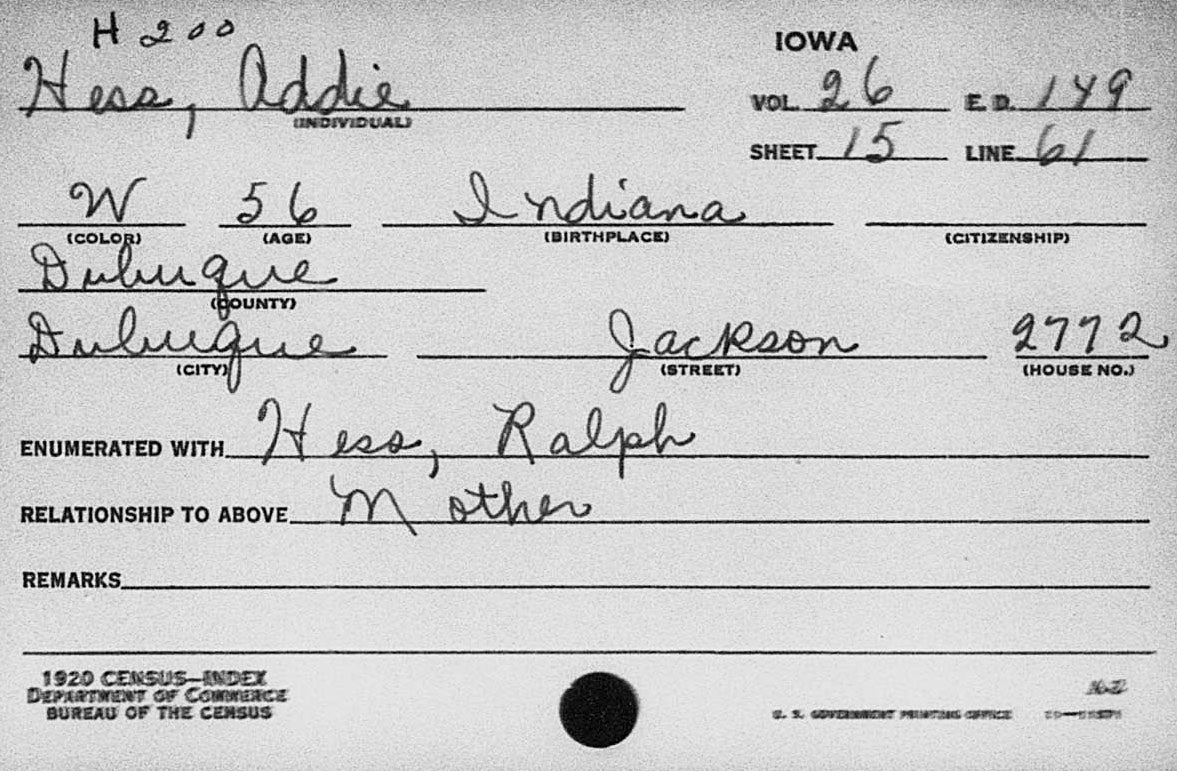 H 200
IOWA
Hess, Addie
(INDIVIDUAL)
VOL. 26 E.D. 149
SHEET 15 LINE 61
W 56 Indiana
(COLOR) (AGE) (BIRTHPLACE) (CITIZENSHIP)
Dubuque
(COUNTY)
Dubuque Jackson 2772
(CITY) (STREET) (HOUSE NO.)
ENUMERATED WITH Hess, Ralph
RELATIONSHIP TO ABOVE Mother
REMARKS
1920 CENSUS—INDEX
DEPARTMENT OF COMMERCE
BUREAU OF THE CENSUS
U. S. GOVERNMENT PRINTING OFFICE